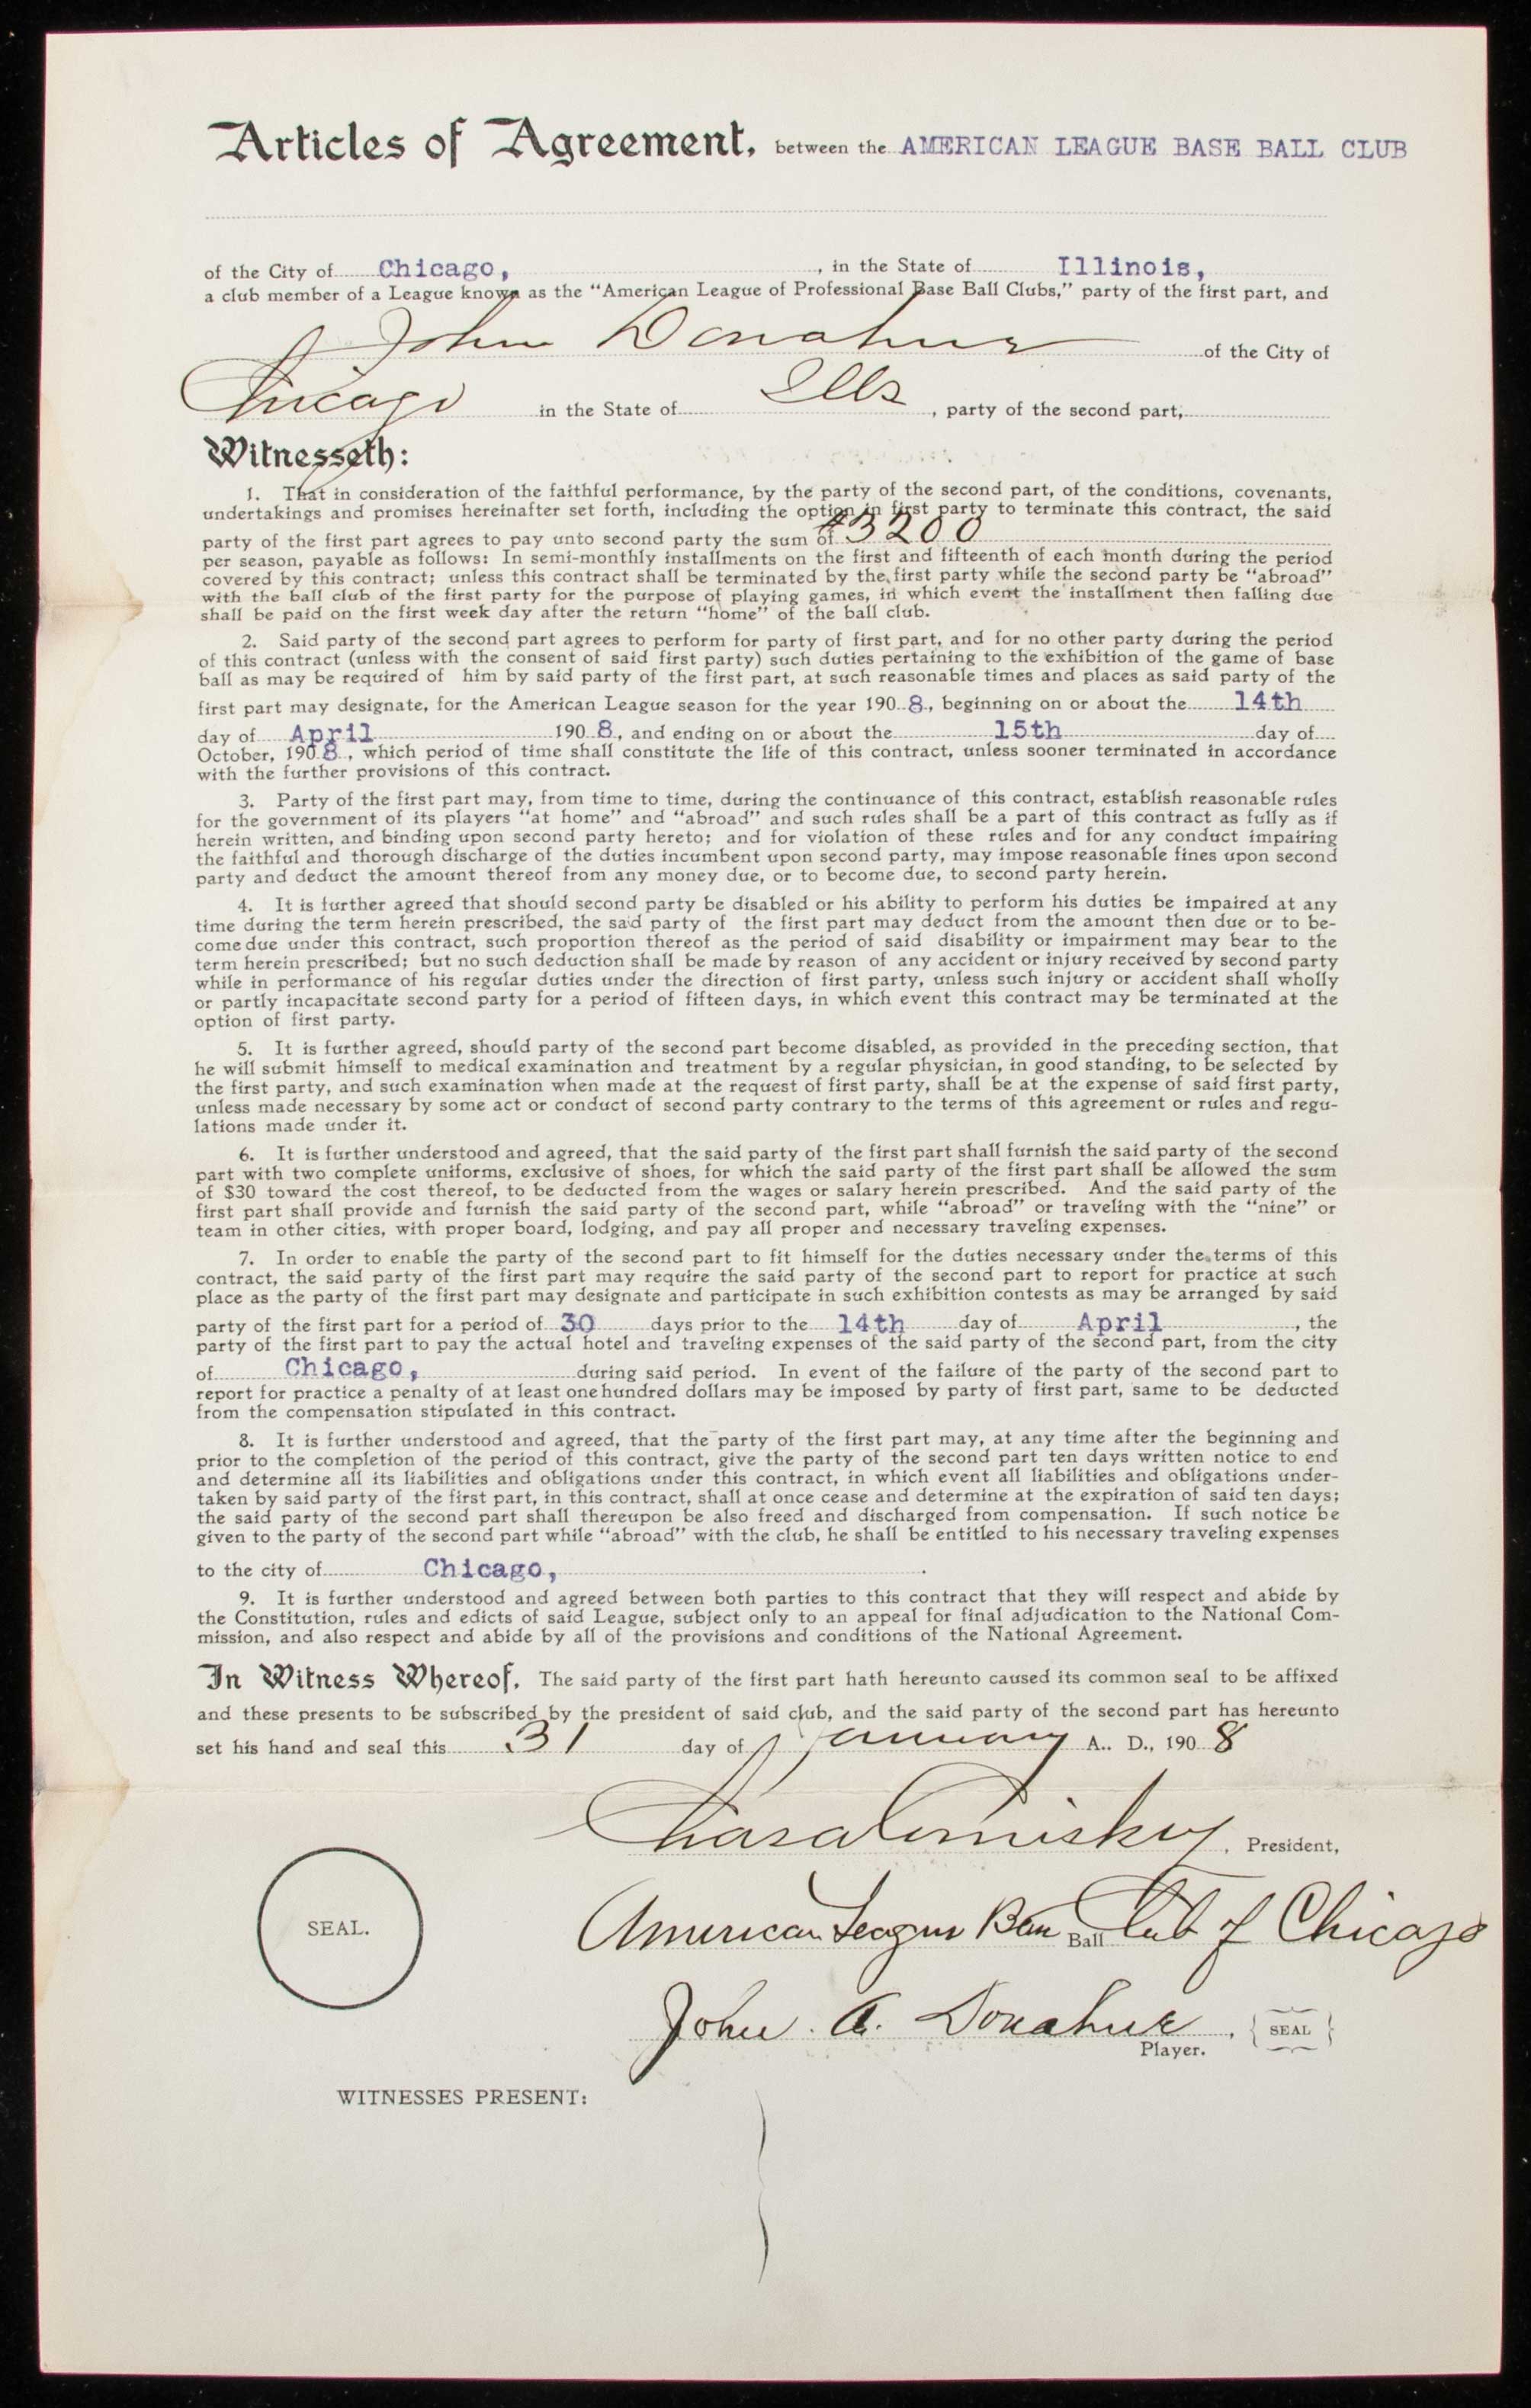 Articles of Agreement, between the AMERICAN LEAGUE BASE BALL CLUB
of the City of Chicago, , in the State of Illinois,
a club member of a League known as the "American League of Professional Base Ball Clubs," party of the first part, and
John Donahue of the City of
Chicago in the State of Ills , party of the second part,
Witnesseth:
1. That in consideration of the faithful performance, by the party of the second part, of the conditions, covenants,
undertakings and promises hereinafter set forth, including the option in first party to terminate this contract, the said
party of the first part agrees to pay unto second party the sum of $3200
per season, payable as follows: In semi-monthly installments on the first and fifteenth of each month during the period
covered by this contract; unless this contract shall be terminated by the first party while the second party be "abroad"
with the ball club of the first party for the purpose of playing games, in which event the installment then falling due
shall be paid on the first week day after the return "home" of the ball club.
2. Said party of the second part agrees to perform for party of first part, and for no other party during the period
of this contract (unless with the consent of said first party) such duties pertaining to the exhibition of the game of base
ball as may be required of him by said party of the first part, at such reasonable times and places as said party of the
first part may designate, for the American League season for the year 190 8, beginning on or about the 14th
day of April 190 8, and ending on or about the 15th day of
October, 190 8, which period of time shall constitute the life of this contract, unless sooner terminated in accordance
with the further provisions of this contract.
3. Party of the first part may, from time to time, during the continuance of this contract, establish reasonable rules
for the government of its players "at home" and "abroad" and such rules shall be a part of this contract as fully as if
herein written, and binding upon second party hereto; and for violation of these rules and for any conduct impairing
the faithful and thorough discharge of the duties incumbent upon second party, may impose reasonable fines upon second
party and deduct the amount thereof from any money due, or to become due, to second party herein.
4. It is further agreed that should second party be disabled or his ability to perform his duties be impaired at any
time during the term herein prescribed, the said party of the first part may deduct from the amount then due or to be-
come due under this contract, such proportion thereof as the period of said disability or impairment may bear to the
term herein prescribed; but no such deduction shall be made by reason of any accident or injury received by second party
while in performance of his regular duties under the direction of first party, unless such injury or accident shall wholly
or partly incapacitate second party for a period of fifteen days, in which event this contract may be terminated at the
option of first party.
5. It is further agreed, should party of the second part become disabled, as provided in the preceding section, that
he will submit himself to medical examination and treatment by a regular physician, in good standing, to be selected by
the first party, and such examination when made at the request of first party, shall be at the expense of said first party,
unless made necessary by some act or conduct of second party contrary to the terms of this agreement or rules and regu-
lations made under it.
6. It is further understood and agreed, that the said party of the first part shall furnish the said party of the second
part with two complete uniforms, exclusive of shoes, for which the said party of the first part shall be allowed the sum
of $30 toward the cost thereof, to be deducted from the wages or salary herein prescribed. And the said party of the
first part shall provide and furnish the said party of the second part, while "abroad" or traveling with the "nine" or
team in other cities, with proper board, lodging, and pay all proper and necessary traveling expenses.
7. In order to enable the party of the second part to fit himself for the duties necessary under the terms of this
contract, the said party of the first part may require the said party of the second part to report for practice at such
place as the party of the first part may designate and participate in such exhibition contests as may be arranged by said
party of the first part for a period of 30 days prior to the 14th day of April , the
party of the first part to pay the actual hotel and traveling expenses of the said party of the second part, from the city
of Chicago, during said period. In event of the failure of the party of the second part to
report for practice a penalty of at least one hundred dollars may be imposed by party of first part, same to be deducted
from the compensation stipulated in this contract.
8. It is further understood and agreed, that the party of the first part may, at any time after the beginning and
prior to the completion of the period of this contract, give the party of the second part ten days written notice to end
and determine all its liabilities and obligations under this contract, in which event all liabilities and obligations under-
taken by said party of the first part, in this contract, shall at once cease and determine at the expiration of said ten days;
the said party of the second part shall thereupon be also freed and discharged from compensation. If such notice be
given to the party of the second part while "abroad" with the club, he shall be entitled to his necessary traveling expenses
to the city of Chicago, .
9. It is further understood and agreed between both parties to this contract that they will respect and abide by
the Constitution, rules and edicts of said League, subject only to an appeal for final adjudication to the National Com-
mission, and also respect and abide by all of the provisions and conditions of the National Agreement.
In Witness Whereof, The said party of the first part hath hereunto caused its common seal to be affixed
and these presents to be subscribed by the president of said club, and the said party of the second part has hereunto
set his hand and seal this 31 day of January A.. D., 190 8
Chas a Comiskey, President,
SEAL.
American League Base Ball Club of Chicago
John. A. Donahue, SEAL
Player.
WITNESSES PRESENT: